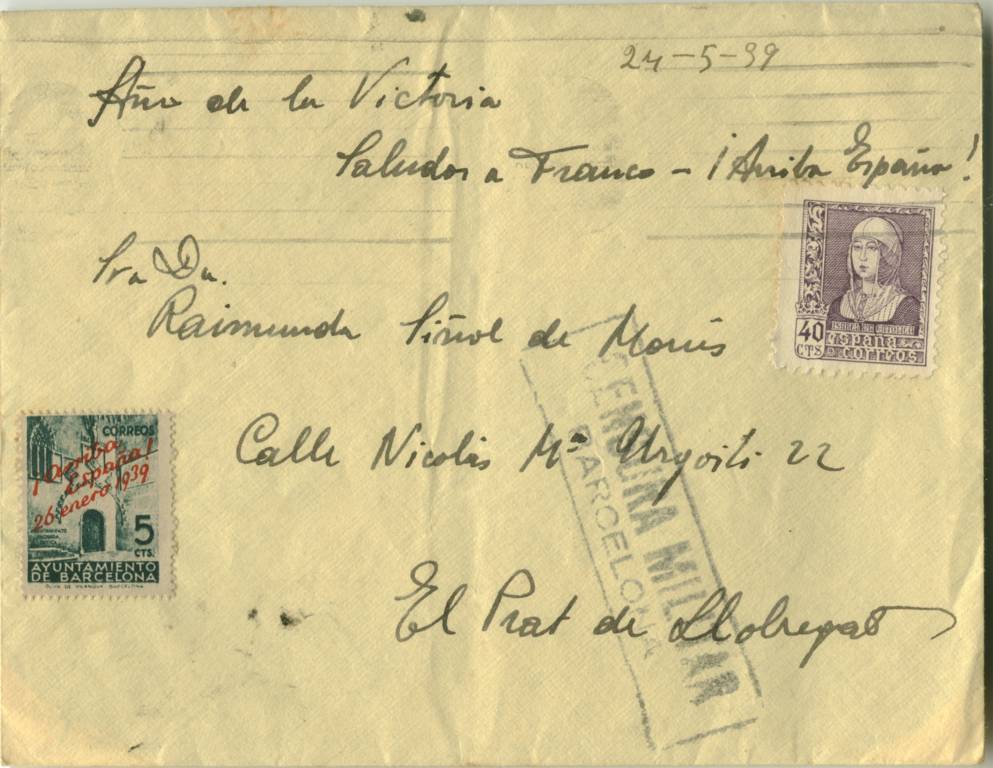 24-5-39
Año de la Victoria
Saludos a Franco - ¡Arriba España!
Sra Dª.
Raimunda Siñol de Monés
Calle Nicolás Mª Urgoiti 22
El Prat de Llobregat
40
CTS
ISABEL LA CATOLICA
ESPAÑA
CORREOS
CORREOS
¡Arriba
España!
26 enero 1939
5
CTS.
AYUNTAMIENTO
DE BARCELONA
CENSURA MILITAR
BARCELONA